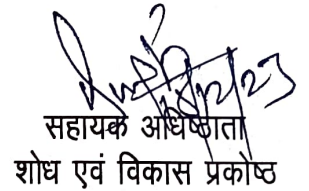 सहायक अधिष्ठाता
शोध एवं विकास प्रकोष्ठ